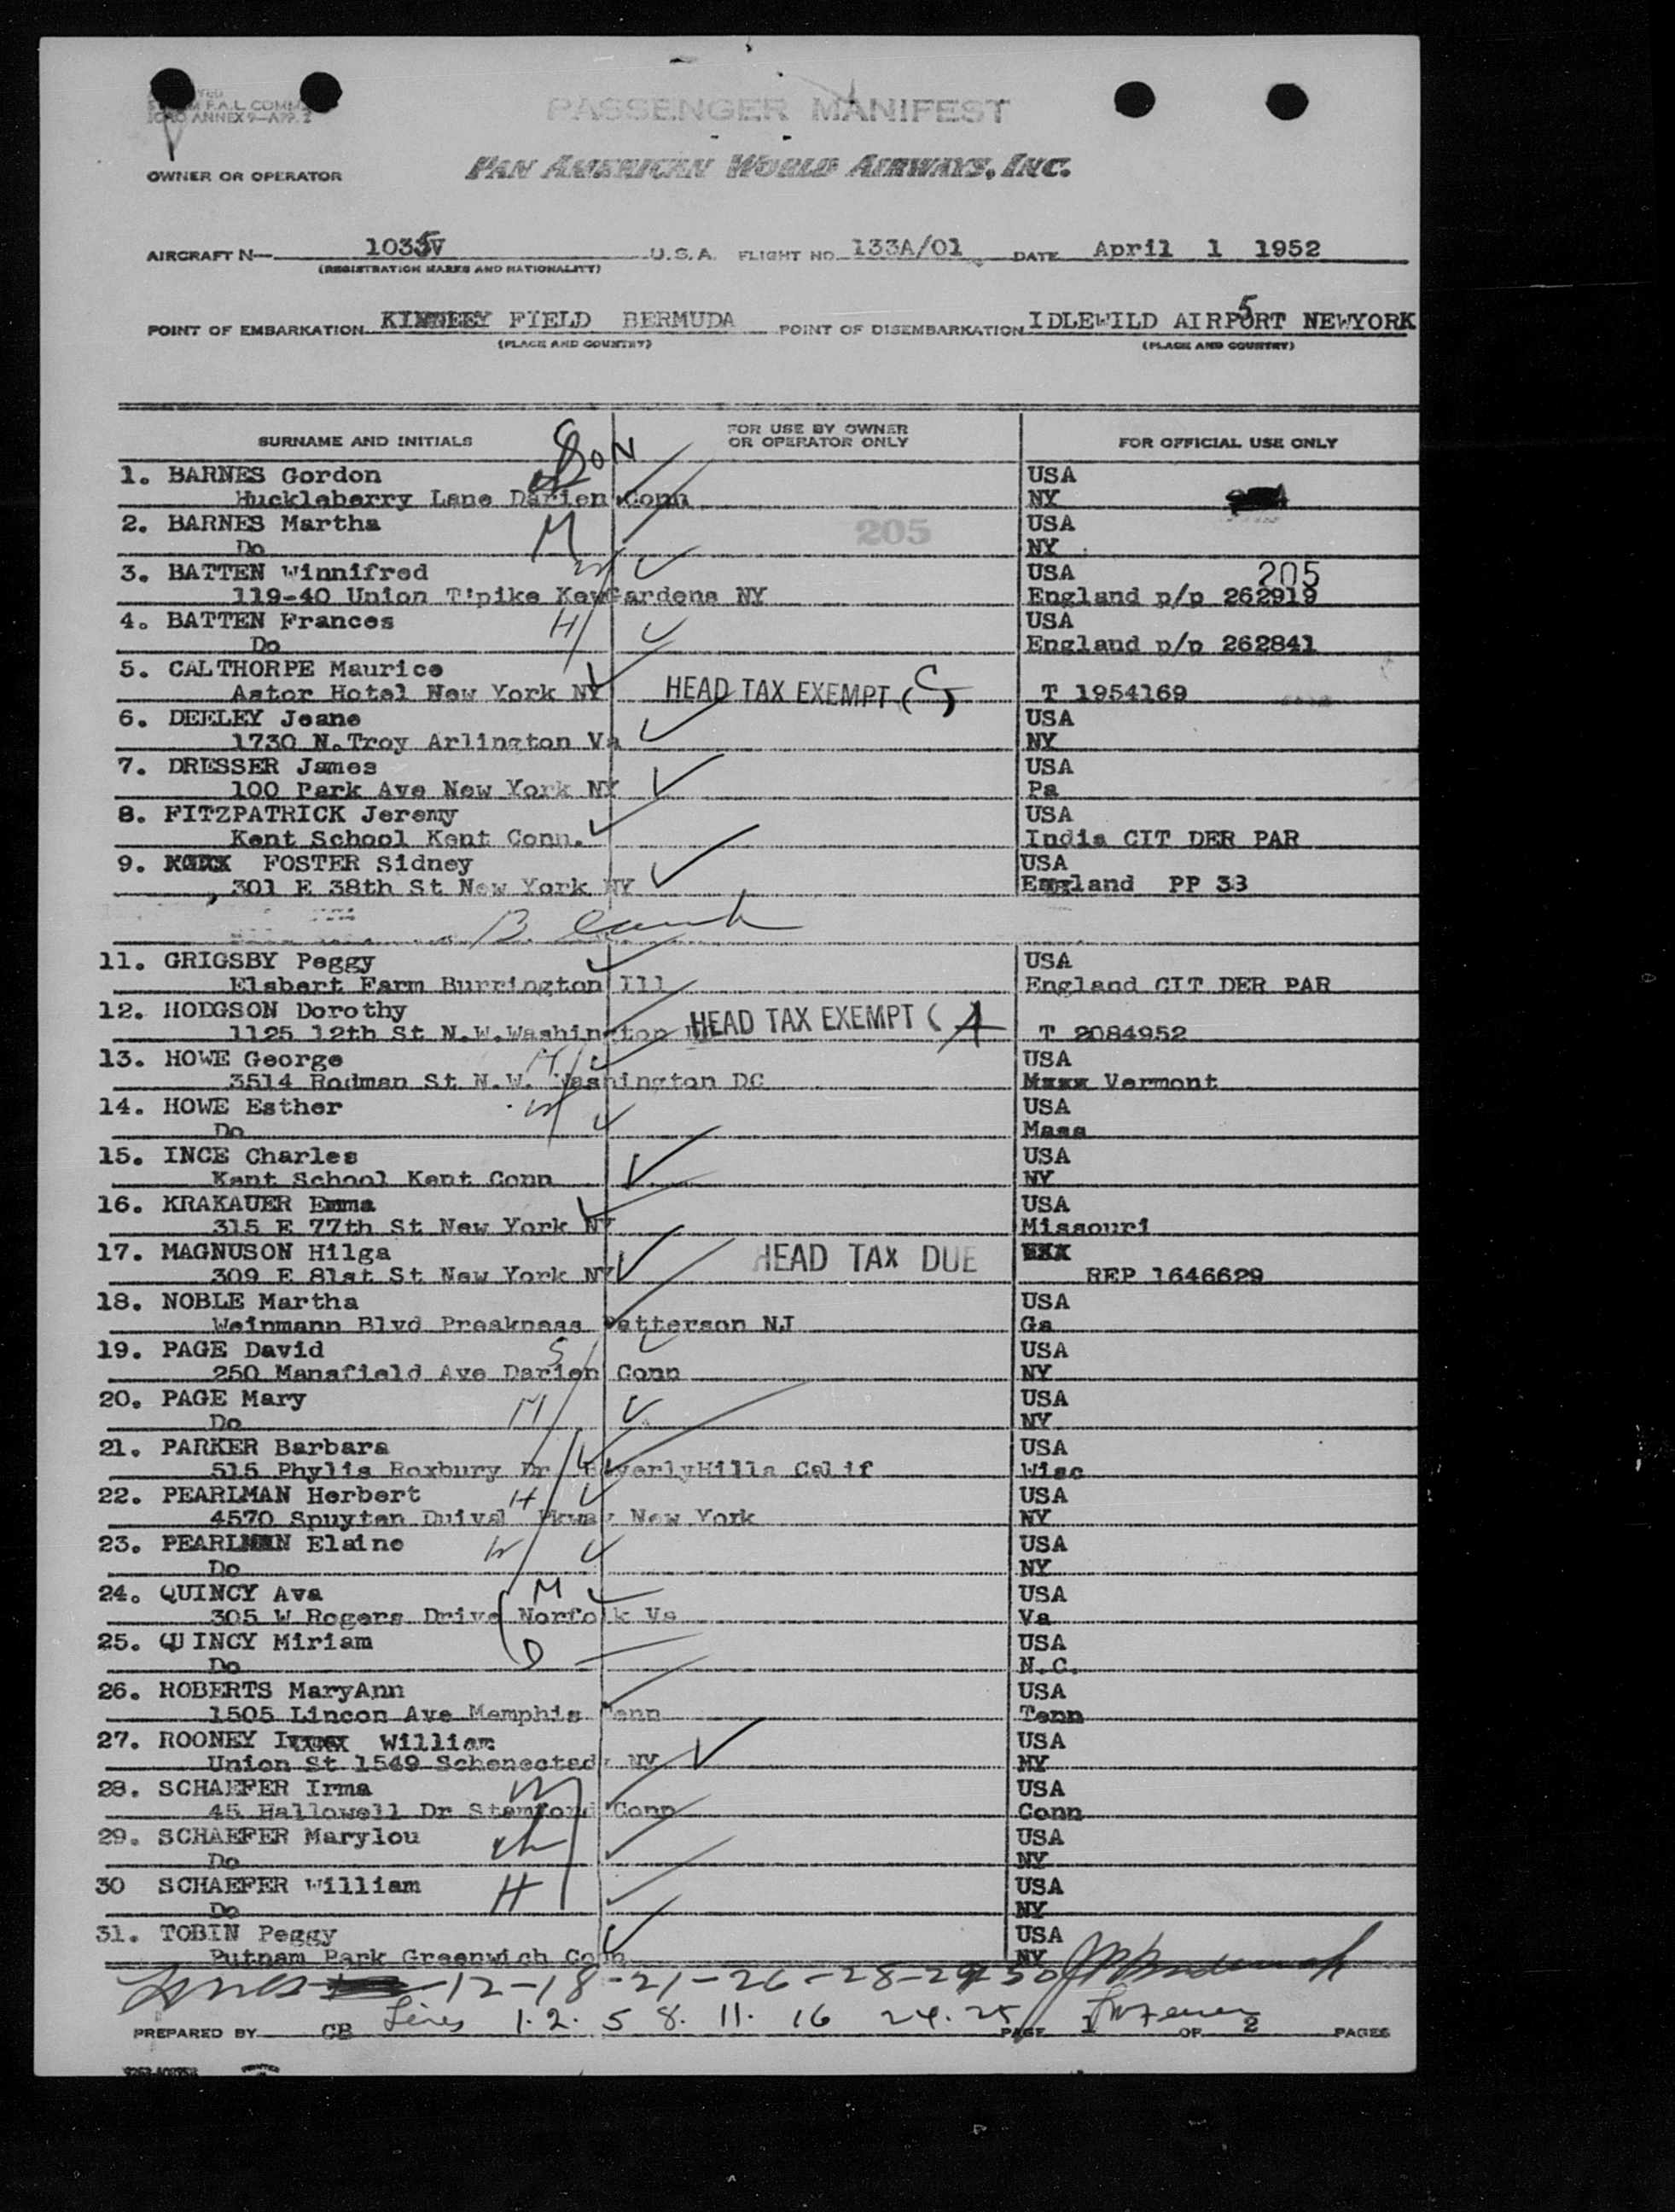 F.A.L. COMM
ICAO ANNEX 9—APP. 2
PASSENGER MANIFEST
OWNER OR OPERATOR PAN AMERICAN WORLD AIRWAYS, INC.
AIRCRAFT N— 1035V U.S.A. FLIGHT NO. 133A/01 DATE April 1 1952
(REGISTRATION MARKS AND NATIONALITY)
5
POINT OF EMBARKATION KINDLEY FIELD BERMUDA POINT OF DISEMBARKATION IDLEWILD AIRPORT NEWYORK
(PLACE AND COUNTRY) (PLACE AND COUNTRY)
SURNAME AND INITIALS FOR USE BY OWNER OR OPERATOR ONLY FOR OFFICIAL USE ONLY
SON
1. BARNES Gordon USA
Huckleberry Lane Darien Conn NY
2. BARNES Martha M 205 USA
Do NY
3. BATTEN Winnifred W USA 205
119-40 Union T'pike KewGardens NY England p/p 262919
4. BATTEN Frances H USA
Do England p/p 262841
5. CALTHORPE Maurice
Astor Hotel New York NY HEAD TAX EXEMPT (G) T 1954169
6. DEELEY Jeane USA
1730 N.Troy Arlington Va NY
7. DRESSER James USA
100 Park Ave New York NY Pa
8. FITZPATRICK Jeremy USA
Kent School Kent Conn. India CIT DER PAR
9. FOSTER Sidney USA
301 E 38th St New York NY England PP 33
Blank
11. GRIGSBY Peggy USA
Elsbert Farm Burrington Ill England CIT DER PAR
12. HODGSON Dorothy
1125 12th St N.W.Washington HEAD TAX EXEMPT (A T 2084952
13. HOWE George H USA
3514 Rodman St N.W. Washington DC Mxxx Vermont
14. HOWE Esther W USA
Do Mass
15. INCE Charles USA
Kent School Kent Conn NY
16. KRAKAUER Emma USA
315 E 77th St New York NY Missouri
17. MAGNUSON Hilga HEAD TAX DUE
309 E 81st St New York NY REP 1646629
18. NOBLE Martha USA
Weinmann Blvd Preakness Patterson NJ Ga
19. PAGE David S USA
250 Mansfield Ave Darien Conn NY
20. PAGE Mary M USA
Do NY
21. PARKER Barbara USA
515 Phylis Roxbury Dr BeverlyHills Calif Wisc
22. PEARLMAN Herbert H USA
4570 Spuyten Duival Pkway New York NY
23. PEARLMAN Elaine W USA
Do NY
24. QUINCY Ava M USA
305 W Rogers Drive Norfolk Va Va
25. QUINCY Miriam D USA
Do N.C.
26. ROBERTS MaryAnn USA
1505 Lincon Ave Memphis Tenn Tenn
27. ROONEY William USA
Union St 1549 Schenectady NY NY
28. SCHAEFER Irma W USA
45 Hallowell Dr Stamford Conn Conn
29. SCHAEFER Marylou ch USA
Do NY
30 SCHAEFER William H USA
Do NY
31. TOBIN Peggy USA
Putnam Park Greenwich Conn NY
Lines 12-18-21-26-28-29-30
Lines 1. 2. 5 8. 11. 16 24. 25
PREPARED BY CB PAGE 1 OF 2 PAGES